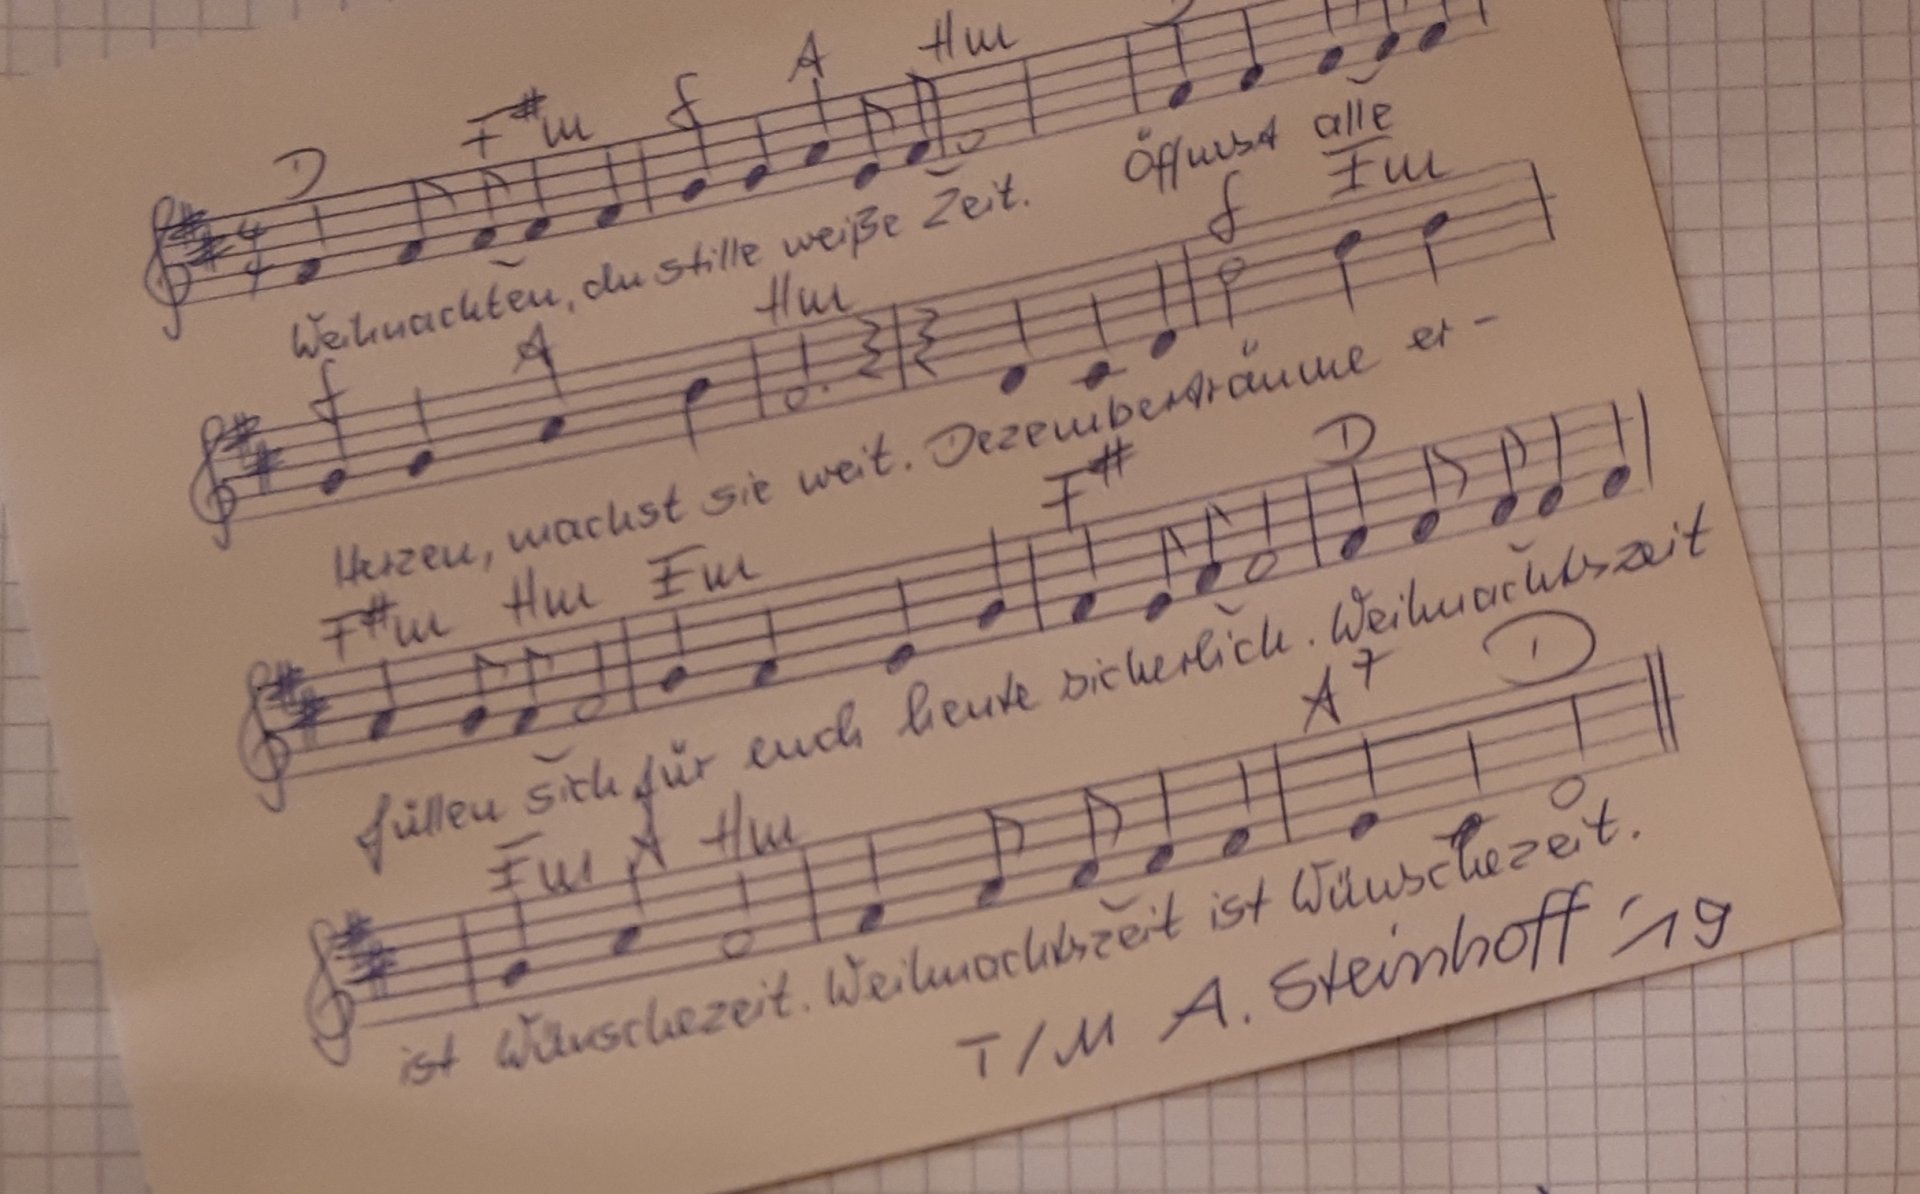 D F#m G A Hm
4/4
Weihnachten, du stille weiße Zeit. Öffnest alle
G A Hm G Em
Herzen, machst sie weit. Dezemberträume er-
F#m Hm Em F# D
füllen sich für euch heute sicherlich. Weihnachtszeit
Em A Hm A7 D
ist Wünschezeit. Weihnachtszeit ist Wünschezeit.
T/M A. Steinhoff '19